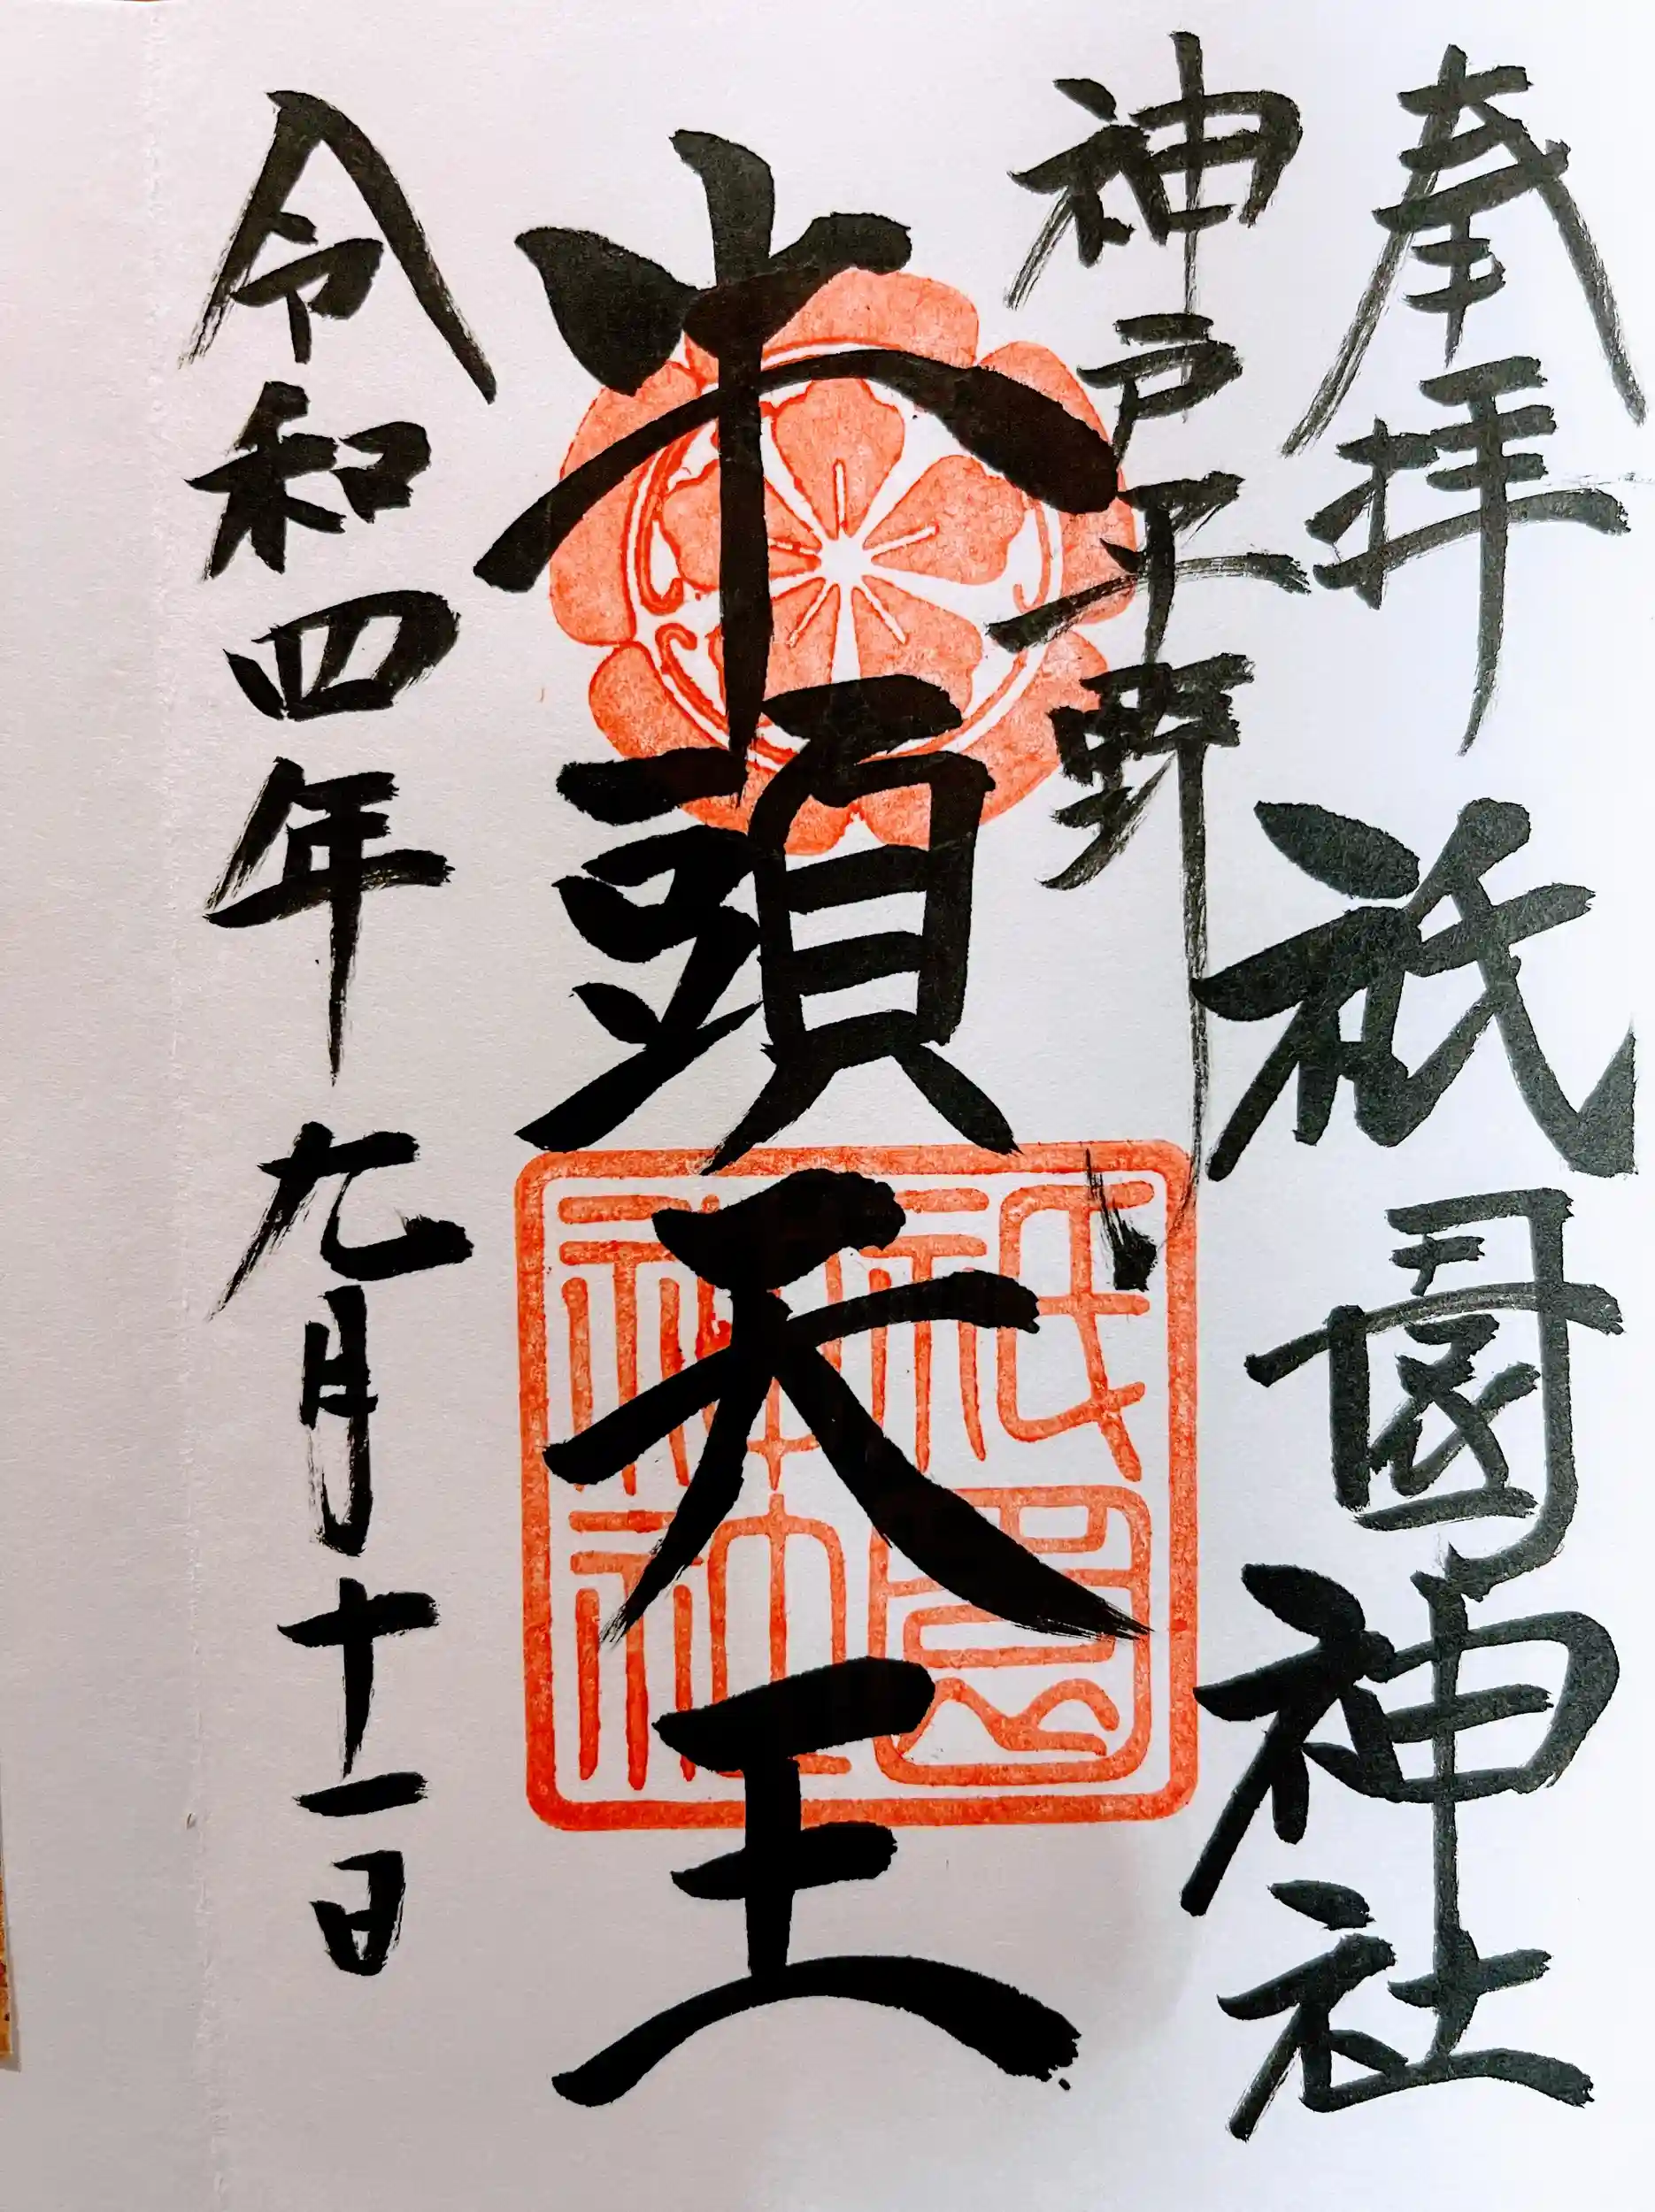 奉拝 祇園神社
神戸平野
牛頭天王
祇園
神社
令和四年九月十一日